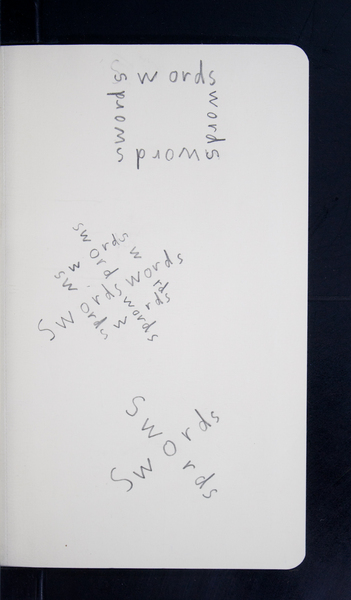 swords
swords
swords
swords
swords
swords
swords
swords
swords
swords
swords